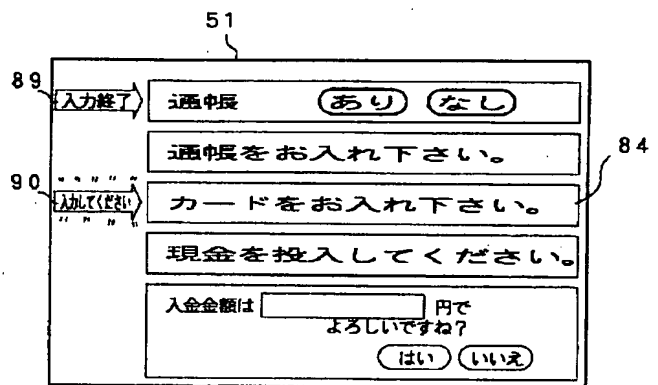 51
89
入力終了
通帳 あり なし
通帳をお入れ下さい。
84
90
入力してください
カードをお入れ下さい。
現金を投入してください。
入金金額は 円で
よろしいですね?
はい いいえ